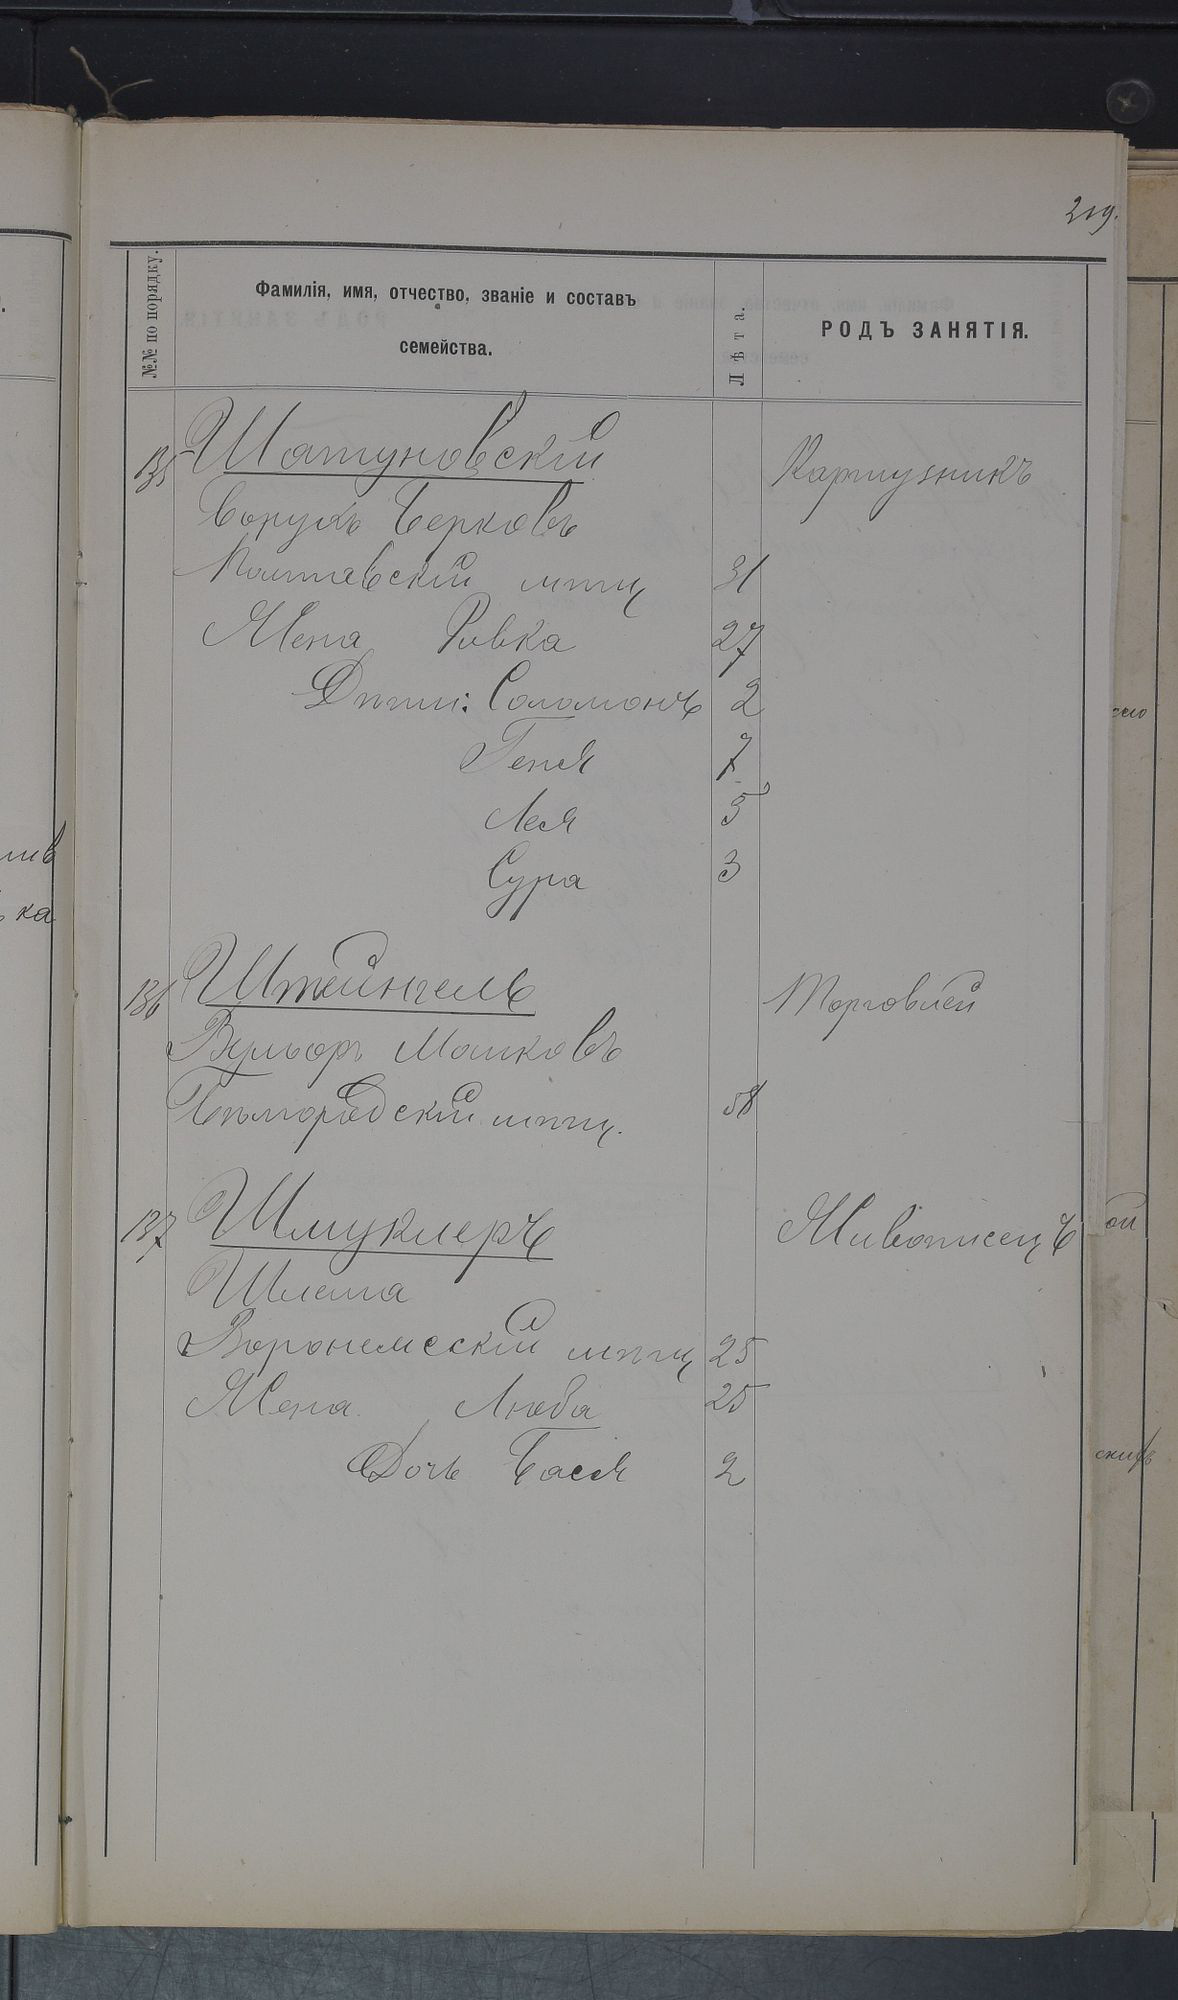 219.
№№ по порядку.
Фамилія, имя, отчество, званіе и составъ
семейства.
Лѣта.
РОДЪ ЗАНЯТІЯ.
135 Шатуновскій Картузникъ
Борухъ Берковъ
Полтавскій мѣщ 31
Жена Ривка 27
Дѣти: Соломонъ 2
Геня 7
Лея 5
Сура 3
136 Штейнгель Торговлей
Вульфъ Мошковъ
Бѣлгородскій мѣщ. 58
137 Шмуклеръ Живописецъ
Шлема
Воронежскій мѣщ 25
Жена Люба 25
Дочь Бася 2